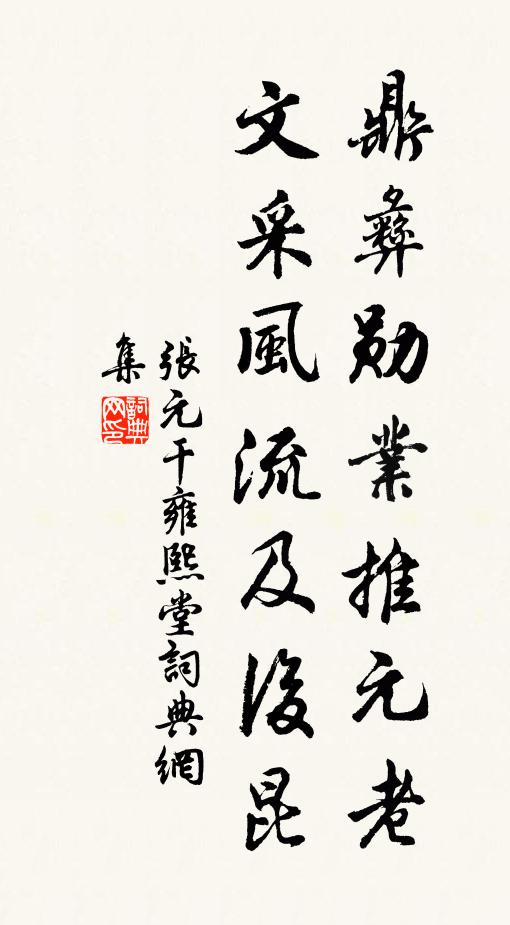 鼎彝勛業推元老
文采風流及後昆
張元干雍熙堂詞典網
集
詞典
网印